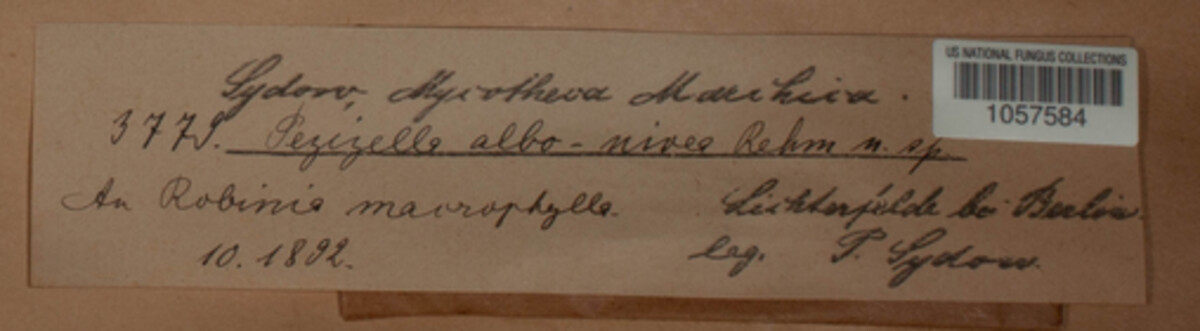 Sydow, Mycotheca Marchica.
US NATIONAL FUNGUS COLLECTIONS
1057584
3779. Pezizella albo-nivea Rehm n. sp.
An Robinia macrophylla. Lichterfelde bei Berlin.
10. 1892. leg. P. Sydow.